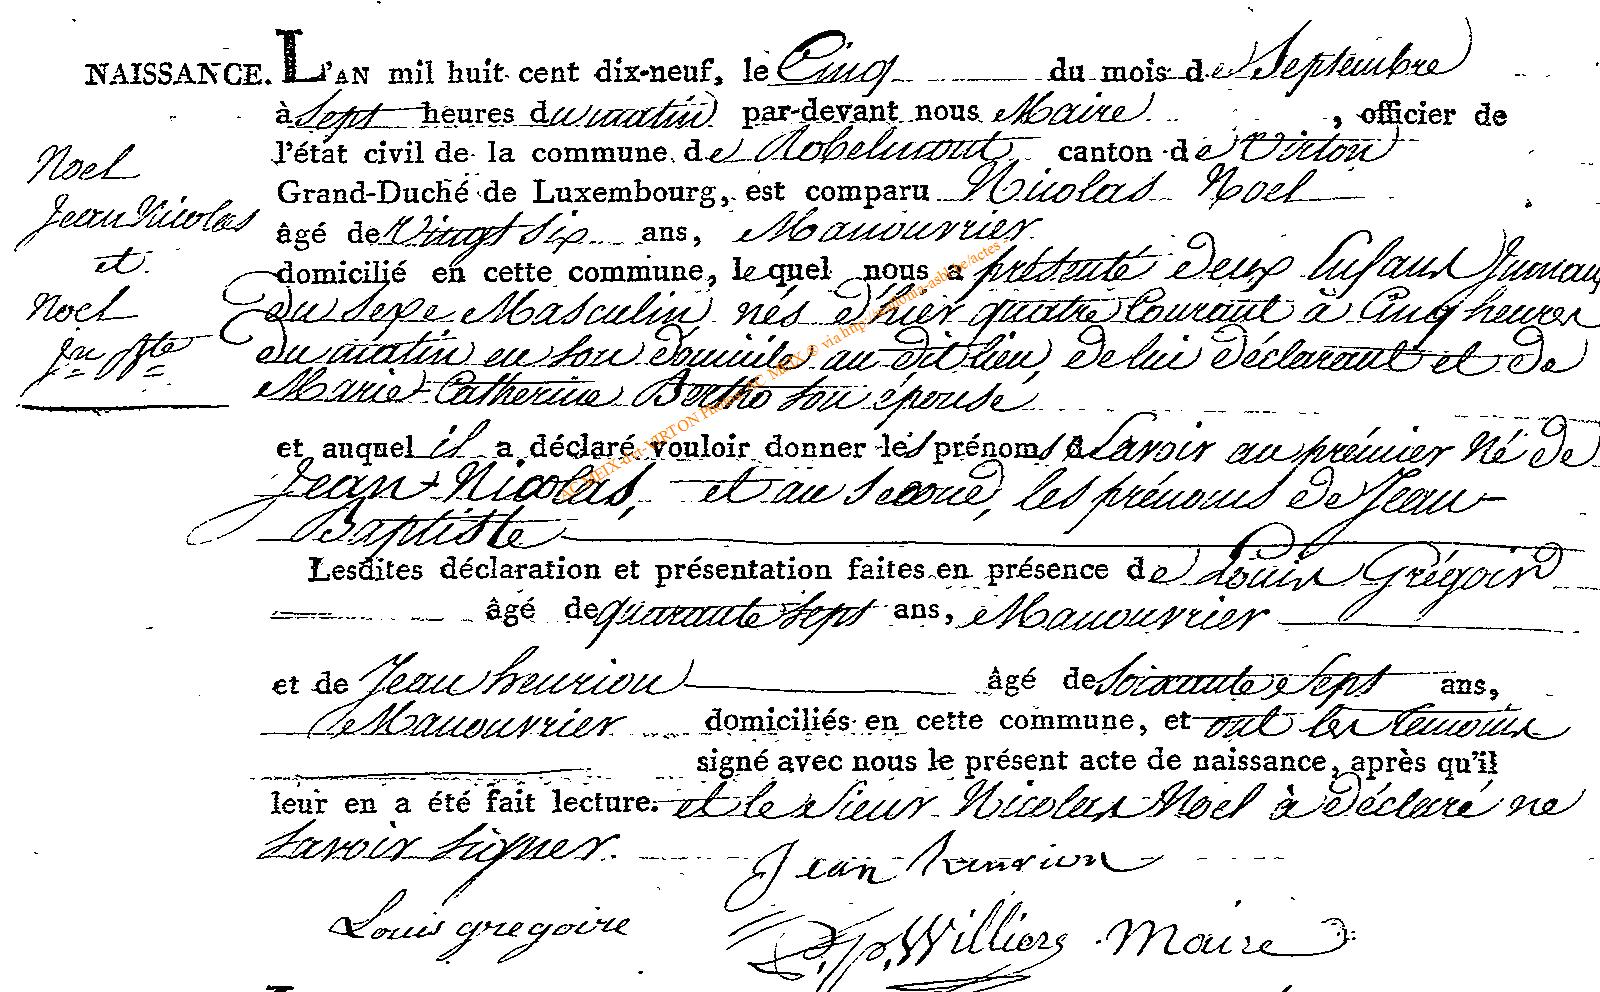 NAISSANCE. L'AN mil huit cent dix-neuf, le Cinq du mois de Septembre
à Sept heures du matin par-devant nous Maire, officier de
l'état civil de la commune de Robelmont canton de Virton
Grand-Duché de Luxembourg, est comparu Nicolas Noel
âgé de Vingt Six ans, Manouvrier
domicilié en cette commune, lequel nous a présenté deux Enfans Jumaux
du Sexe Masculin nés d'hier quatre Courant à Cinq heures
du matin en son domicile au dit lieu, de lui déclarant et de
Marie Catherine Bertho son épouse
et auquel il a déclaré vouloir donner les prénoms à Savoir au prémier Né de
Jean Nicolas, et au Second, les prénoms de Jean
Baptiste
Lesdites déclaration et présentation faites en présence de Louis Grégoir
âgé de quarante Sept ans, Manouvrier
et de Jean henrion âgé de Soixante Sept ans,
Manouvrier domiciliés en cette commune, et ont les témoins
signé avec nous le présent acte de naissance, après qu'il
leur en a été fait lecture. et le Sieur Nicolas Noel à déclaré ne
Savoir Signer.
Noel
Jean Nicolas
et
Noel
Jn Bte
Jean henrion
Louis gregoire
Williers Maire